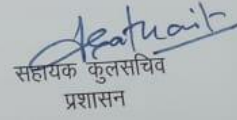 सहायक कुलसचिव
प्रशासन